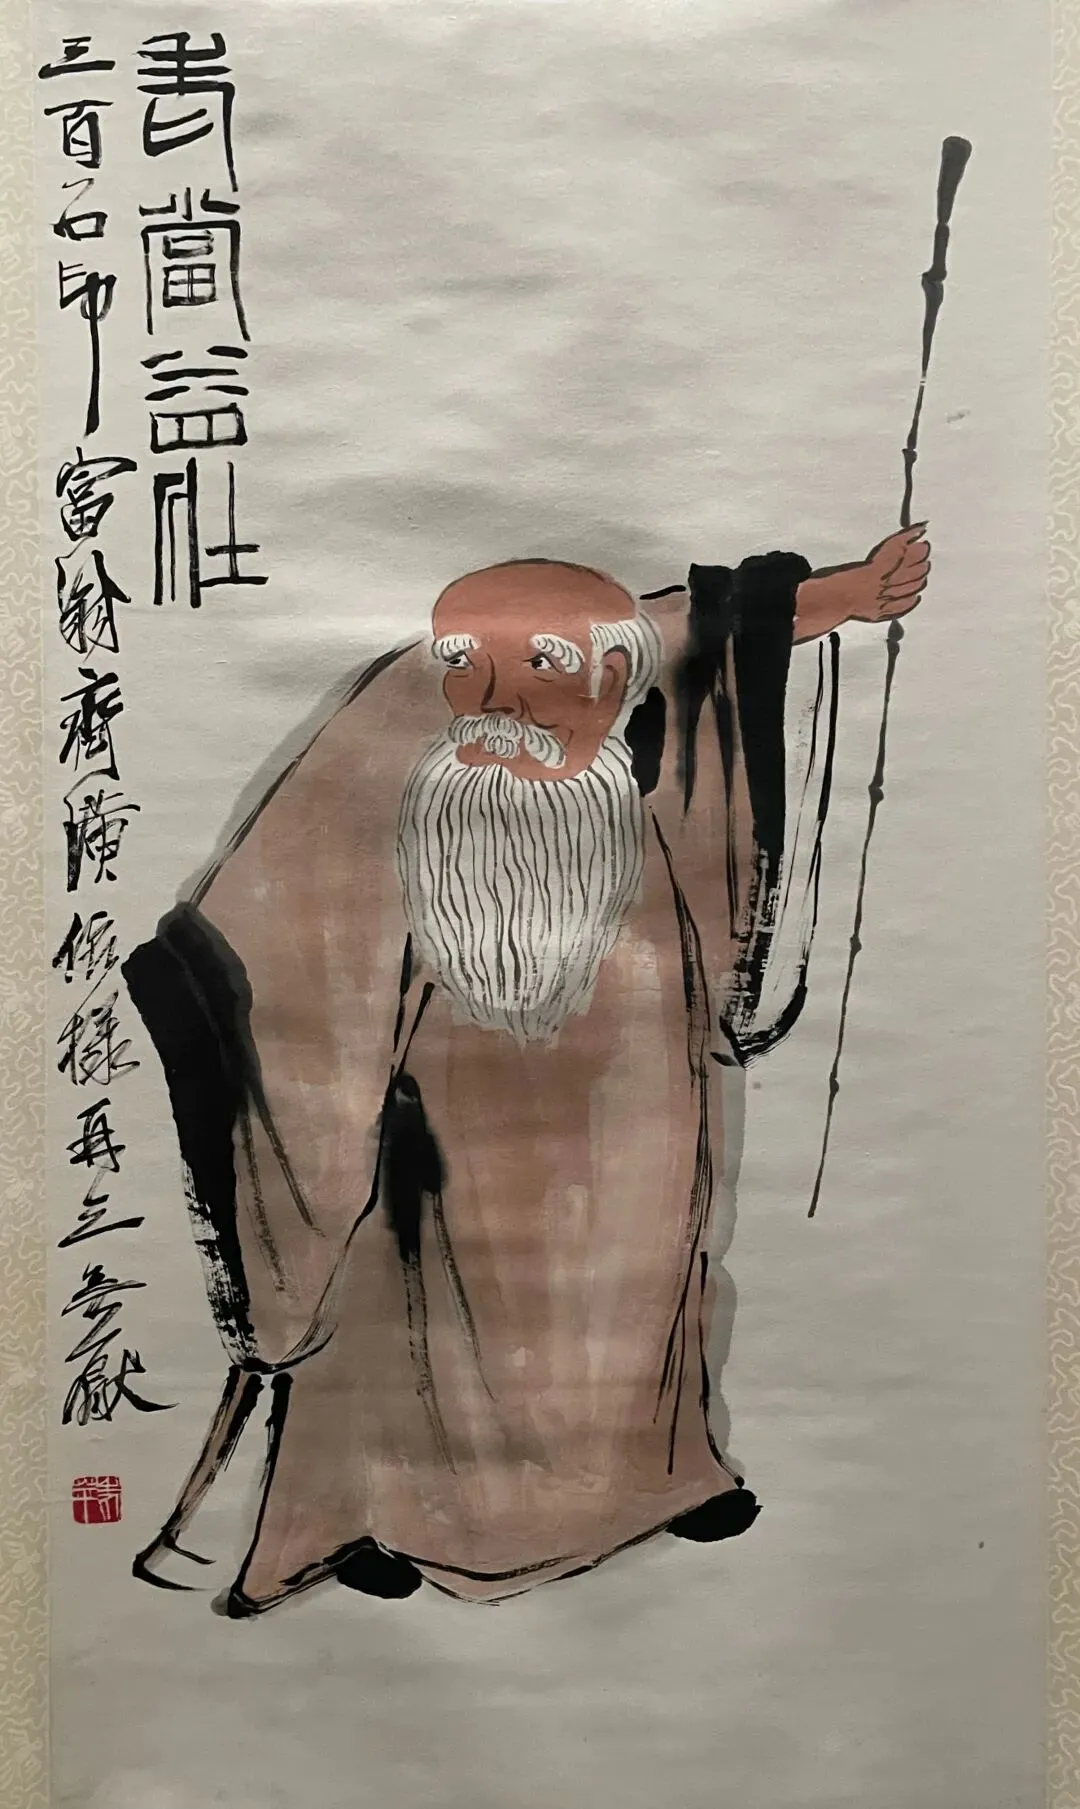 老當益壯
三百石印富翁齊璜依樣再三
老木